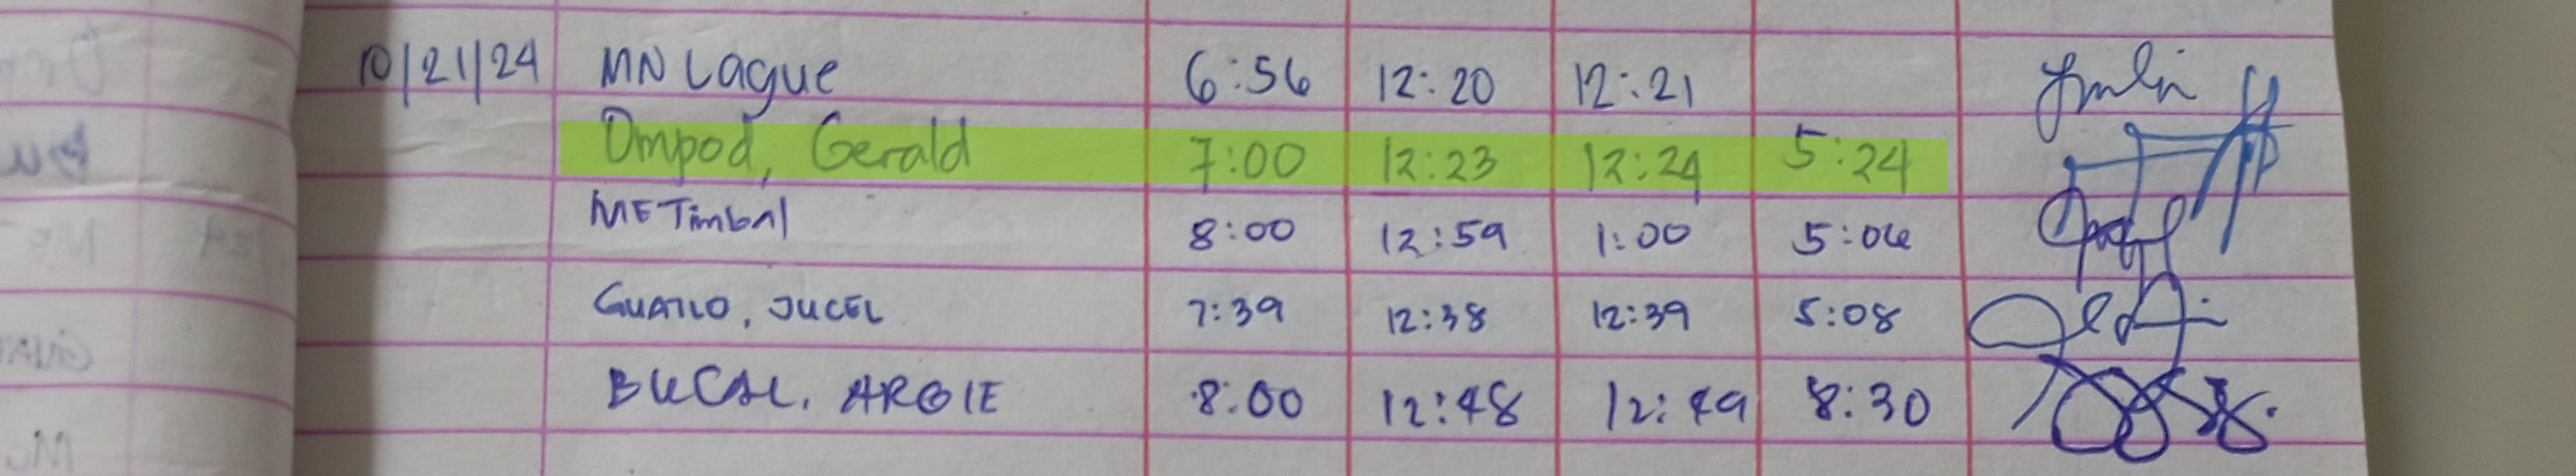 10/21/24 MN Lague 6:56 12:20 12:21
Ompod, Gerald 7:00 12:23 12:24 5:24
ME Timbal 8:00 12:59 1:00 5:06
GUATLO, JUCEL 7:39 12:38 12:39 5:08
BUCAL, ARGIE 8:00 12:48 12:49 8:30